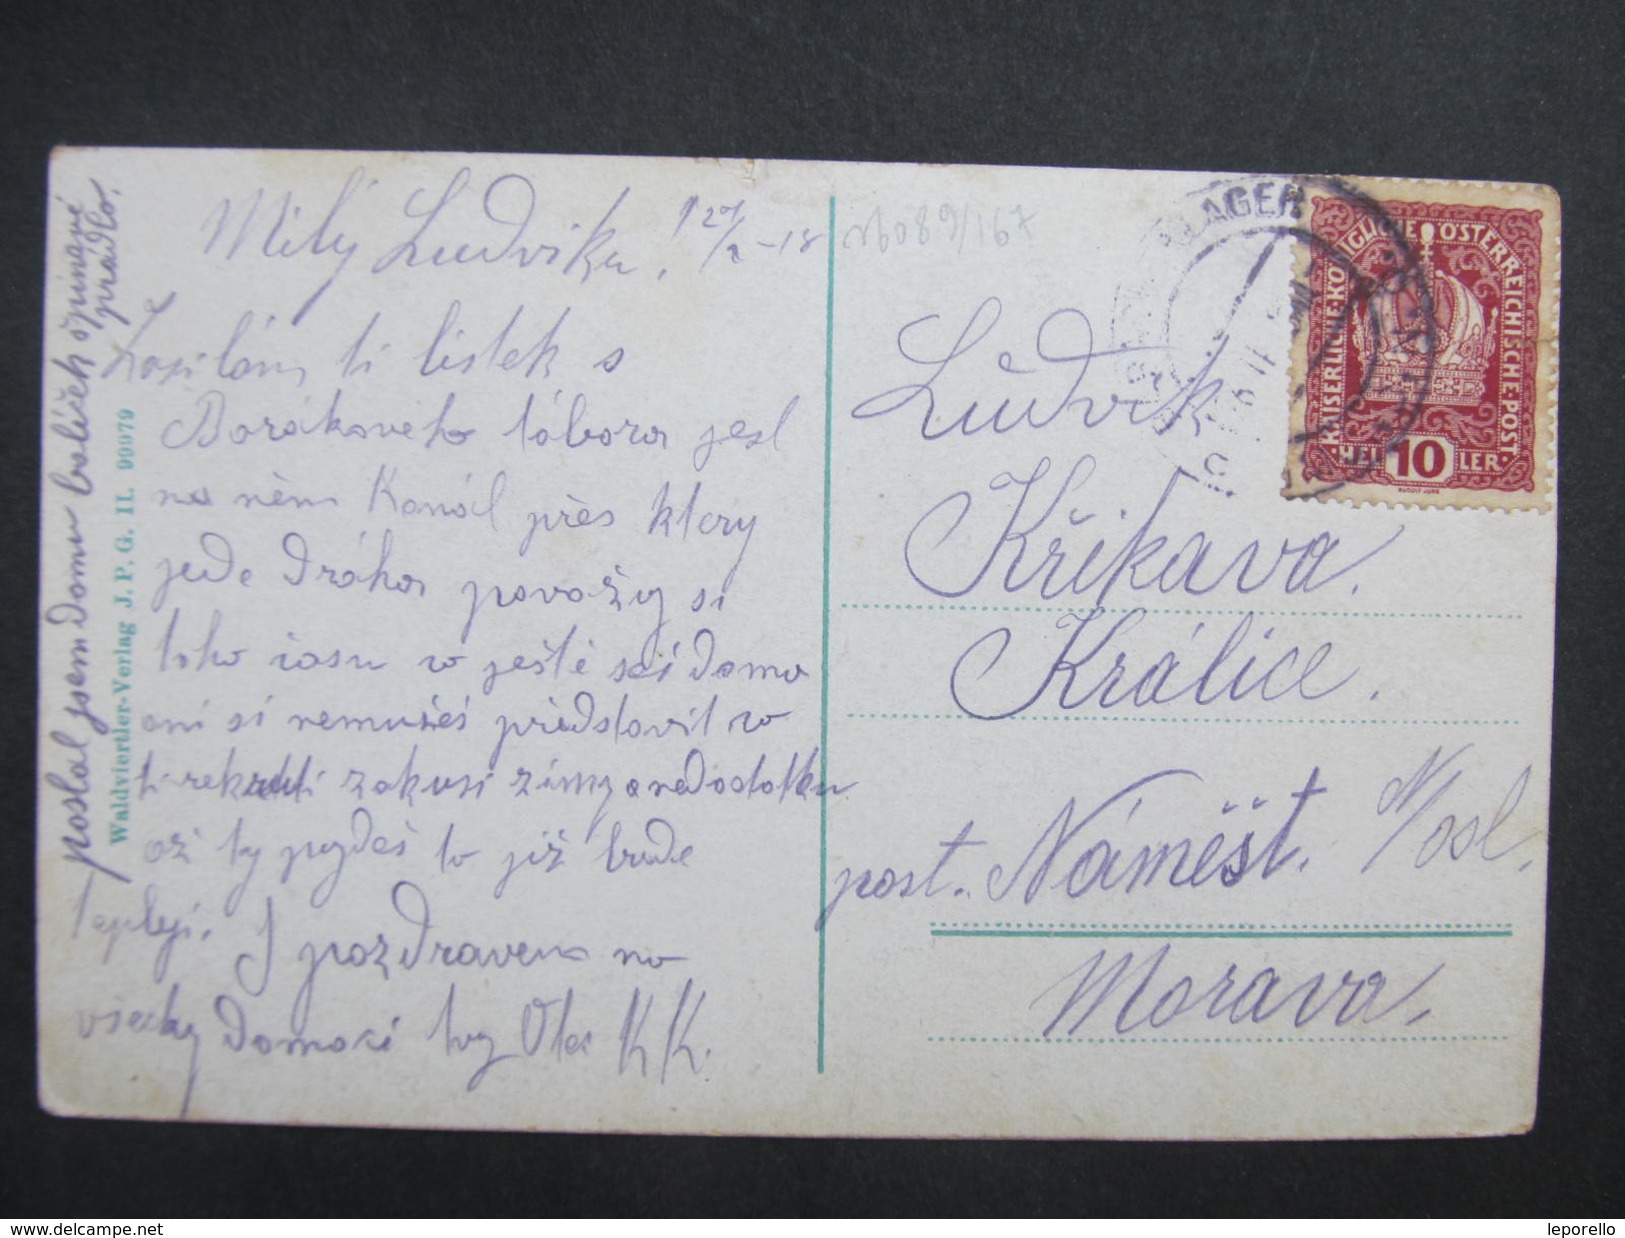 Milý Ludvíku!
Zasílám ti lístek s
Barákového tábora jest
na něm Kanál přes ktery
jede dráha považ si
toho času v ještě seš doma
ani si nemužeš představit v
ti rekruti zakusi zimy a nedostatku
až ty pujdeš to již bude
tepleji. S pozdravem na
všecky domací tvy Otec KK.
poslal jsem domu balíček špinavé
prádlo.
Waldviertler-Verlag J. P. G. II. 99979
LAGER
KAISERLICHE·KÖNIGLICHE·ÖSTERREICHISCHE·POST
HEL 10 LER
Ludvik
Křikava.
Králice.
post. Náměšt. N/Osl.
Morava.
delcampe.net
leporello